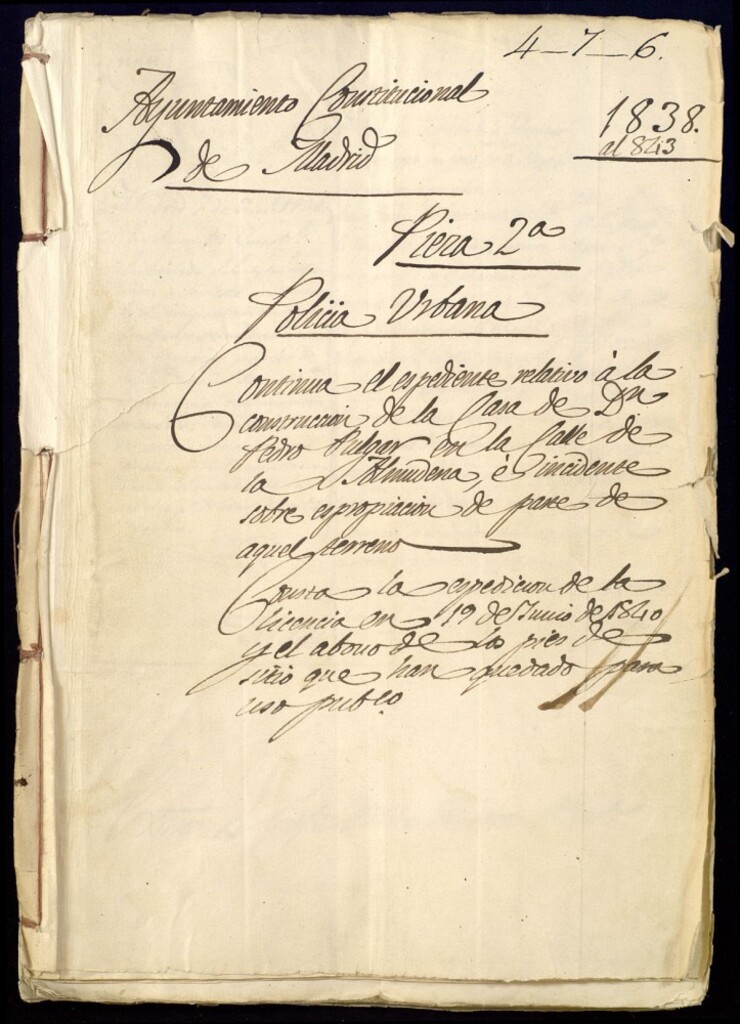 4-7-6.
Ayuntamiento Constitucional
de Madrid
1838.
al 843
Pieza 2ª
Policia Urbana
Continua el espediente relativo á la
construccion de la Casa de Dn
Pedro Pulgar en la Calle de
la Almudena, é incidente
sobre espropiacion de parte de
aquel terreno
Consta la espedicion de la
licencia en 19 de Junio de 1840
y el abono de los pies de
sitio que han quedado para
uso publco.